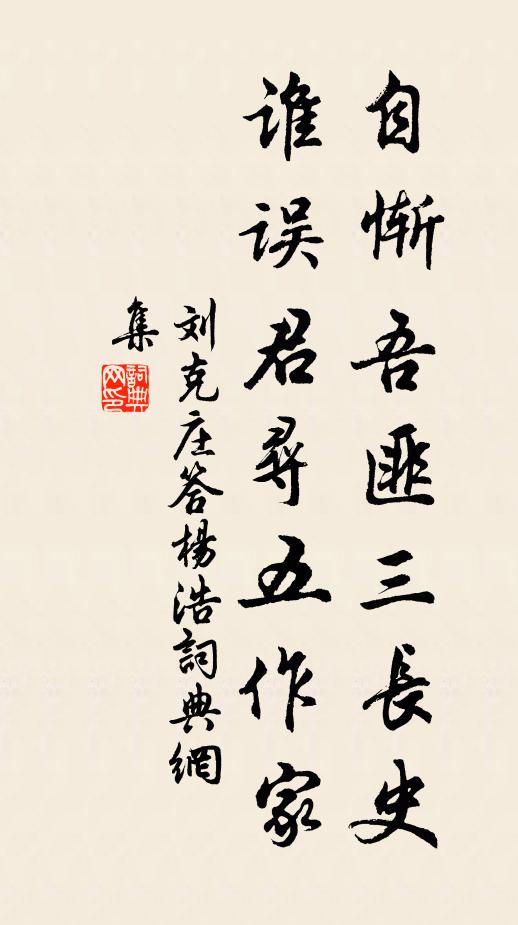 自惭吾匪三長史
谁误君尋五作家
刘克庄答楊浩詞典網
集
詞典
网印